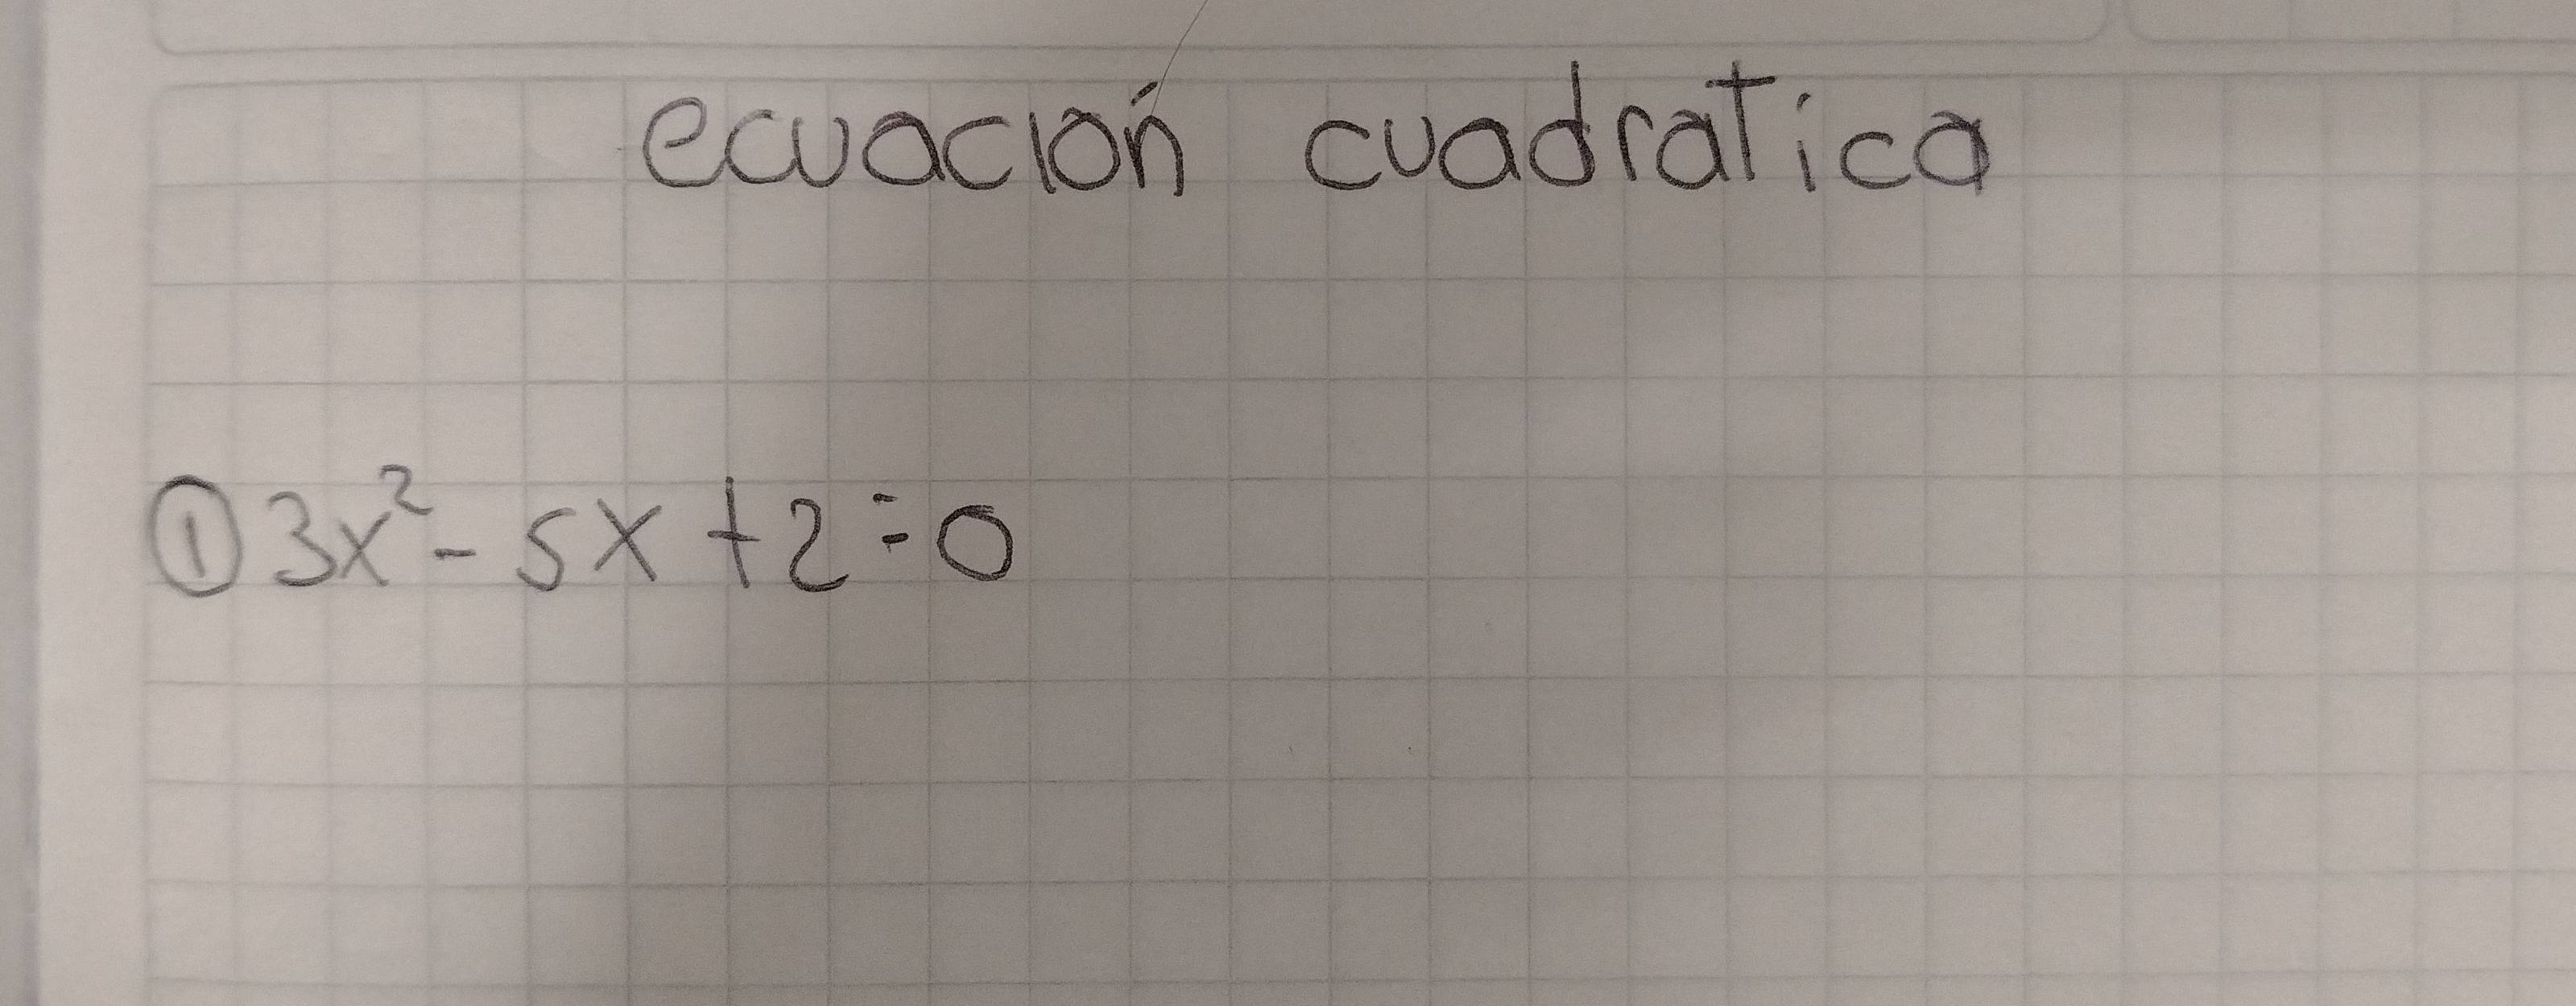 ecuación cuadratica
① 3x² - 5x + 2 = 0